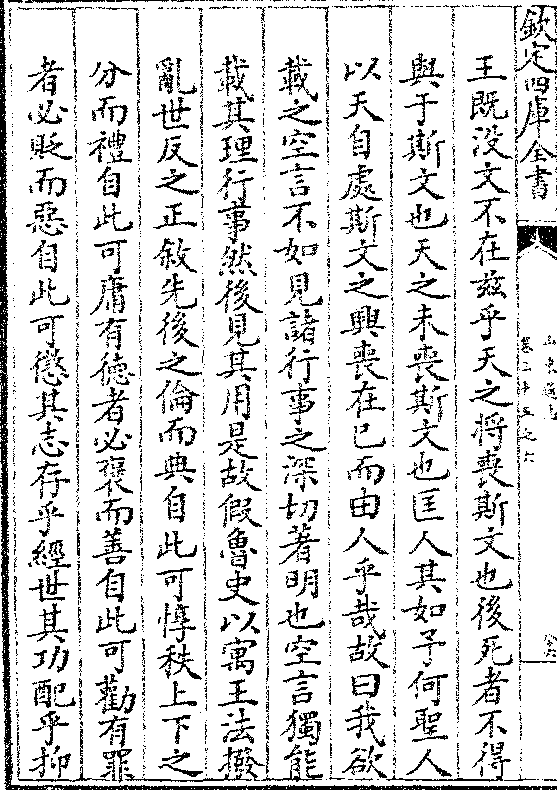 欽定四庫全書
山東通志
卷三十五之六
王既没文不在兹乎天之將喪斯文也後死者不得
與于斯文也天之未喪斯文也匡人其如予何聖人
以天自處斯文之興喪在已而由人乎哉故曰我欲
載之空言不如見諸行事之深切著明也空言獨能
載其理行事然後見其用是故假魯史以寓王法撥
亂世反之正敘先後之倫而典自此可惇秩上下之
分而禮自此可庸有德者必褒而善自此可勸有罪
者必貶而惡自此可懲其志存乎經世其功配乎抑